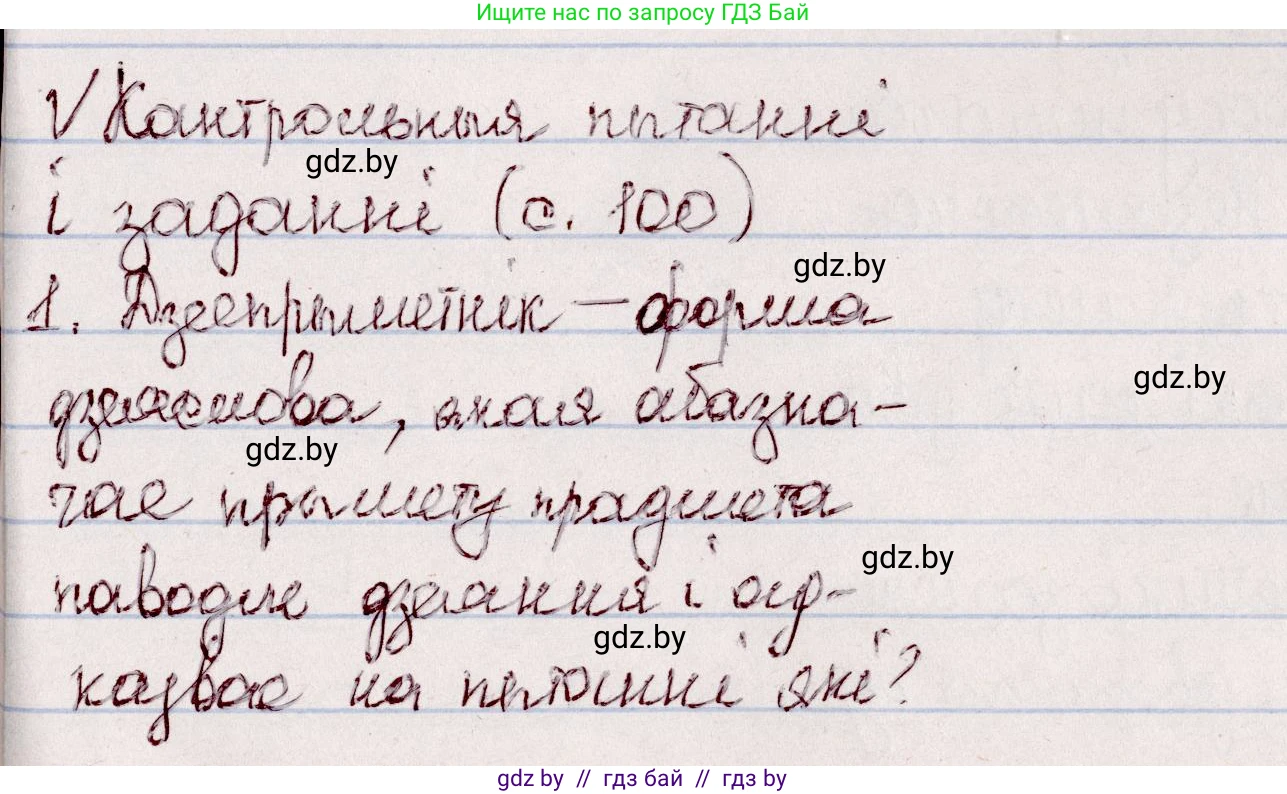 Ищите нас по запросу ГДЗ Бай
√ Кантрольныя пытанні
gdz.by
і заданні (с. 100)
gdz.by
1. Дзеепрыметнік — форма
gdz.by
дзеяслова, якая абазна-
gdz.by
чае прымету прадмета
gdz.by
паводле дзеяння і ад-
gdz.by
казвае на пытанні які?
gdz by // гдз бай // гдз by